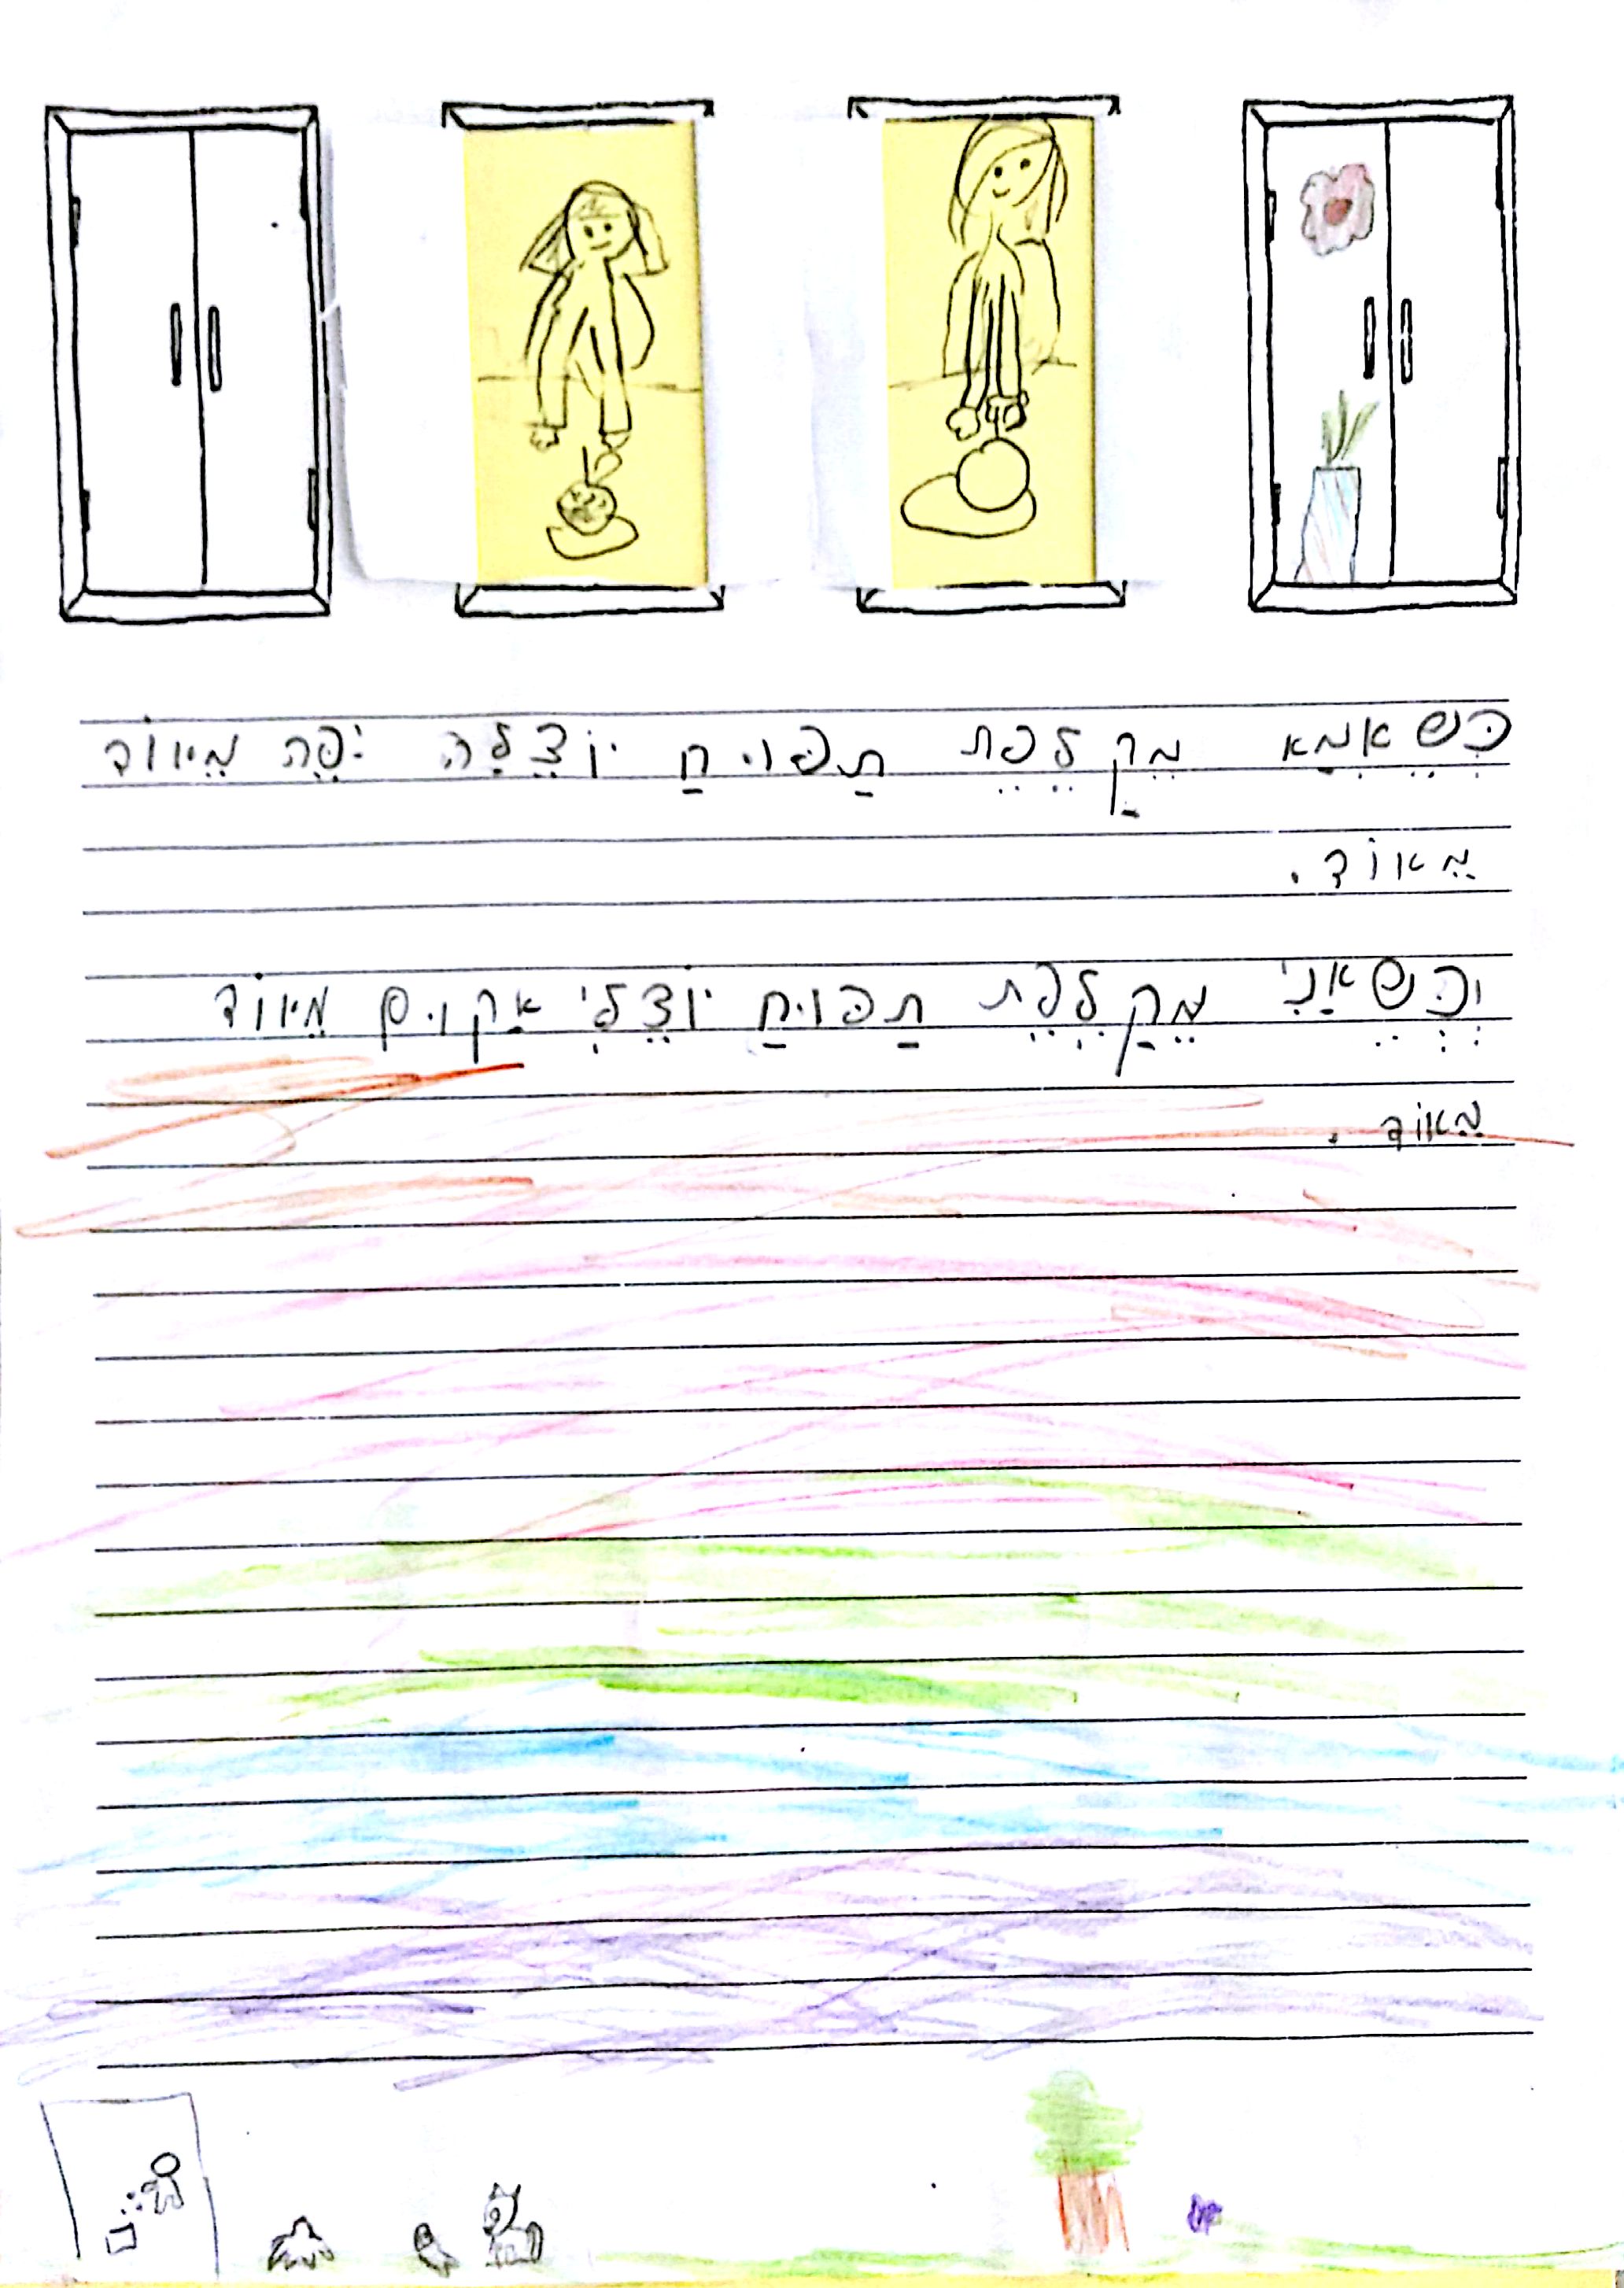 כְּשֶׁאִמָא מְקַלֶפֶת תַפּוּחַ יוֹצֵלָה יֹפֶה מֵיווֹד
מֵאוֹד.
וְכְּשֶׁאַנִי מֵקַלֶפֶת תַפּוּחַ יוֹצֵלִי אַקוּם מֵיווֹד
מֵאוֹד.